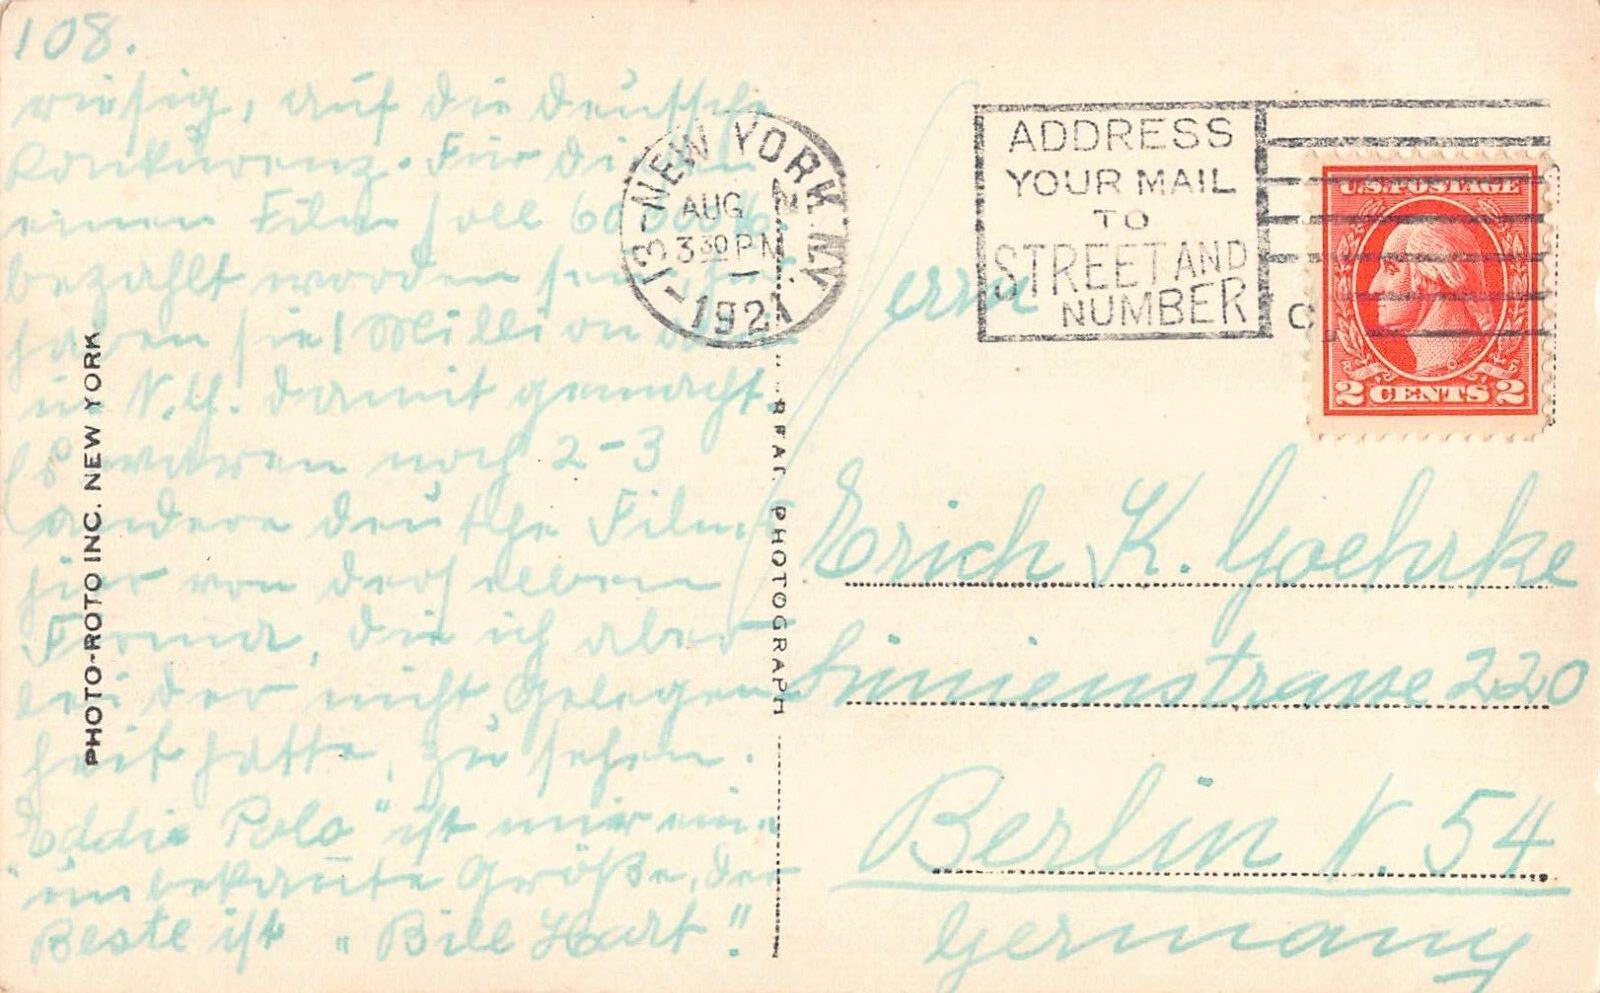 108.
riesig, auf die deutsche
Konkurenz. Für die
einen Film soll 60000
bezahlt worden sein,
haben sie 1 Million
in N.Y. damit gemacht.
Es waren noch 2-3
andere deutsche Film
hier von derselben
Firma, die ich aber
leider nicht Gelegen
heit hatte, zu sehen.
"Eddie Polo" ist mir eine
unbekannte Größe, der
Beste ist "Bill Hart"!
PHOTO-ROTO INC. NEW YORK
REAL PHOTOGRAPH
NEW YORK, N.Y.
13
AUG 2
3 30 PM
1921
ADDRESS
YOUR MAIL
TO
STREET AND
NUMBER
U.S. POSTAGE
2 CENTS 2
Herrn
Erich K. Goehrke
Linienstrasse 220
Berlin N. 54
Germany